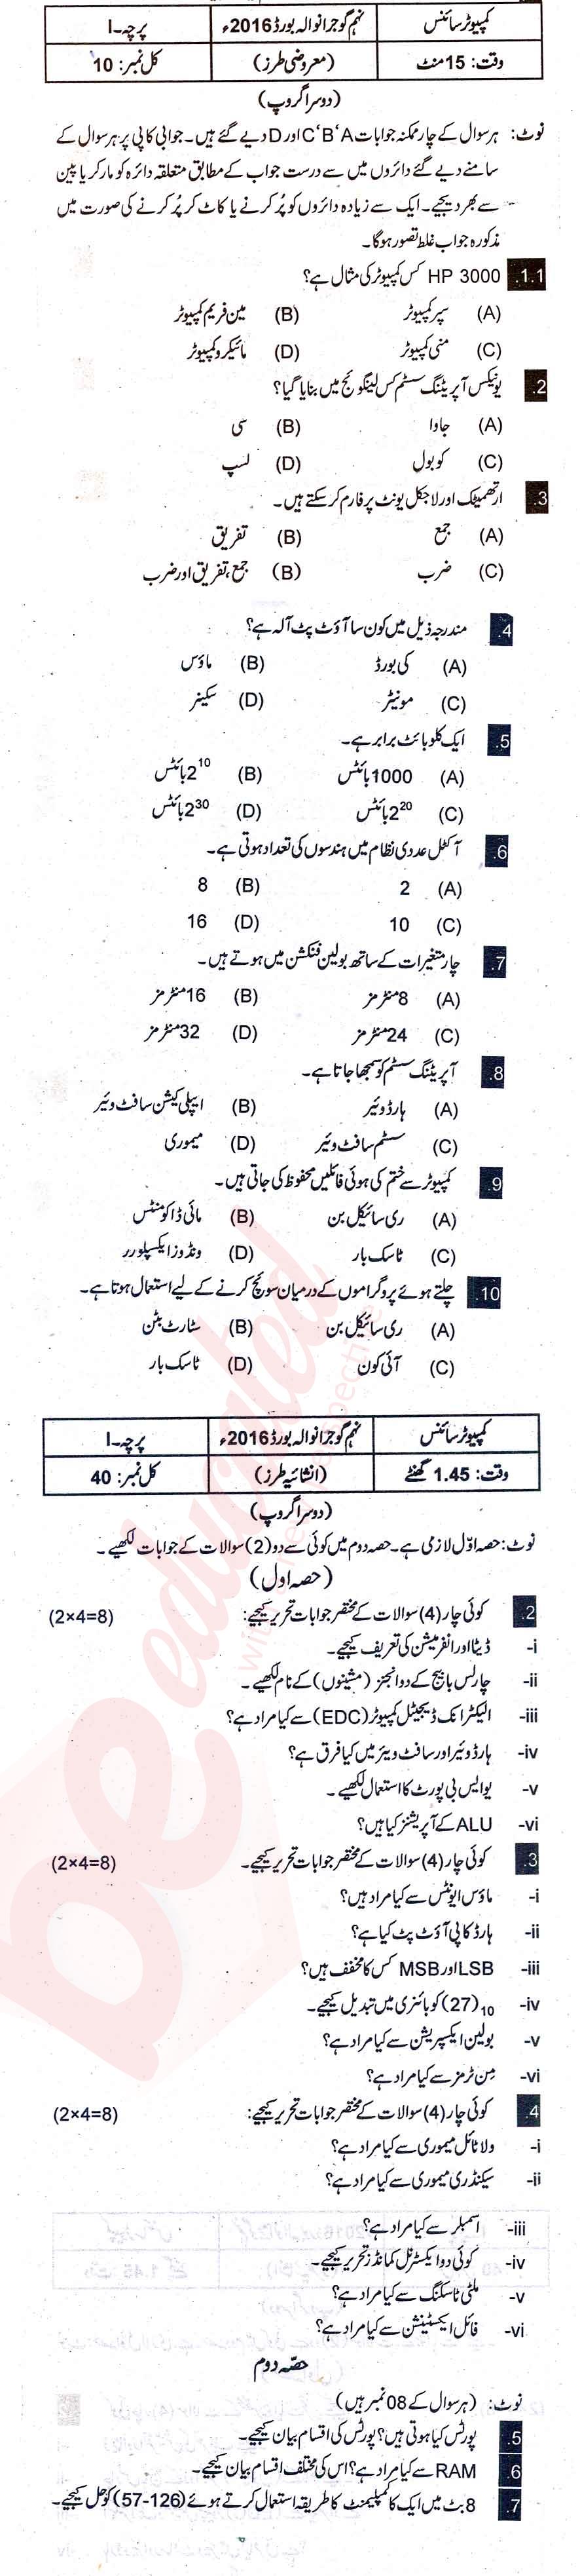 کمپیوٹر سائنس نہم گوجرانوالہ بورڈ 2016ء پرچہ-I
وقت: 15 منٹ (معروضی طرز) کل نمبر: 10
(دوسرا گروپ)
نوٹ: ہر سوال کے چار ممکنہ جوابات C'B'A اور D دیے گئے ہیں۔ جوابی کاپی پر ہر سوال کے
سامنے دیے گئے دائروں میں سے درست جواب کے مطابق متعلقہ دائرہ کو مارکر یا پین
سے بھر دیجیے۔ ایک سے زیادہ دائروں کو پُر کرنے یا کاٹ کر پُر کرنے کی صورت میں
مذکورہ جواب غلط تصور ہوگا۔
1.1. HP 3000 کس کمپیوٹر کی مثال ہے؟
(A) سپر کمپیوٹر (B) مین فریم کمپیوٹر
(C) منی کمپیوٹر (D) مائیکرو کمپیوٹر
2. یونیکس آپریٹنگ سسٹم کس لینگوئج میں بنایا گیا؟
(A) جاوا (B) سی
(C) کوبول (D) لسپ
3. ارتھمیٹک اور لاجکل یونٹ پرفارم کر سکتے ہیں۔
(A) جمع (B) تفریق
(C) ضرب (B) جمع، تفریق اور ضرب
4. مندرجہ ذیل میں کون سا آؤٹ پٹ آلہ ہے؟
(A) کی بورڈ (B) ماؤس
(C) مونیٹر (D) سکینر
5. ایک کلو بائٹ برابر ہے۔
(A) 1000 بائٹس (B) 2¹⁰ بائٹس
(C) 2²⁰ بائٹس (D) 2³⁰ بائٹس
6. آکٹل عددی نظام میں ہندسوں کی تعداد ہوتی ہے۔
(A) 2 (B) 8
(C) 10 (D) 16
7. چار متغیرات کے ساتھ بولین فنکشن میں ہوتے ہیں۔
(A) 8 منٹرمز (B) 16 منٹرمز
(C) 24 منٹرمز (D) 32 منٹرمز
8. آپریٹنگ سسٹم کو سمجھا جاتا ہے۔
(A) ہارڈ وئیر (B) ایپلی کیشن سافٹ وئیر
(C) سسٹم سافٹ وئیر (D) میموری
9. کمپیوٹر سے ختم کی ہوئی فائلیں محفوظ کی جاتی ہیں۔
(A) ری سائیکل بن (B) مائی ڈاکومنٹس
(C) ٹاسک بار (D) ونڈوز ایکسپلورر
10. چلتے ہوئے پروگراموں کے درمیان سوئچ کرنے کے لیے استعمال ہوتا ہے۔
(A) ری سائیکل بن (B) سٹارٹ بٹن
(C) آئی کون (D) ٹاسک بار
کمپیوٹر سائنس نہم گوجرانوالہ بورڈ 2016ء پرچہ-I
وقت: 1.45 گھنٹے (انشائیہ طرز) کل نمبر: 40
(دوسرا گروپ)
نوٹ: حصہ اوّل لازمی ہے۔ حصہ دوم میں کوئی سے دو (2) سوالات کے جوابات لکھیے۔
(حصہ اول)
2. کوئی چار (4) سوالات کے مختصر جوابات تحریر کیجیے: (2×4=8)
i- ڈیٹا اور انفرمیشن کی تعریف کیجیے۔
ii- چارلس بابیج کے دو انجنز (مشینوں) کے نام لکھیے۔
iii- الیکٹرانک ڈیجیٹل کمپیوٹر (EDC) سے کیا مراد ہے؟
iv- ہارڈ وئیر اور سافٹ ویئر میں کیا فرق ہے؟
v- یو ایس بی پورٹ کا استعمال لکھیے۔
vi- ALU کے آپریشنز کیا ہیں؟
3. کوئی چار (4) سوالات کے مختصر جوابات تحریر کیجیے۔ (2×4=8)
i- ماؤس ایونٹس سے کیا مراد ہیں؟
ii- ہارڈ کاپی آؤٹ پٹ کیا ہے؟
iii- LSB اور MSB کس کا مخفف ہیں؟
iv- (27)₁₀ کو بائنری میں تبدیل کیجیے۔
v- بولین ایکسپریشن سے کیا مراد ہے؟
vi- مِن ٹرمز سے کیا مراد ہے؟
4. کوئی چار (4) سوالات کے مختصر جوابات تحریر کیجیے: (2×4=8)
i- ولاٹائل میموری سے کیا مراد ہے؟
ii- سیکنڈری میموری سے کیا مراد ہے؟
iii- اسمبلر سے کیا مراد ہے؟
iv- کوئی دو ایکسٹرنل کمانڈز تحریر کیجیے۔
v- ملٹی ٹاسکنگ سے کیا مراد ہے؟
vi- فائل ایکسٹینشن سے کیا مراد ہے؟
حصّہ دوم
نوٹ: (ہر سوال کے 08 نمبر ہیں)
5. پورٹس کیا ہوتی ہیں؟ پورٹس کی اقسام بیان کیجیے۔
6. RAM سے کیا مراد ہے؟ اس کی مختلف اقسام بیان کیجیے۔
7. 8 بٹ میں ایک کا کمپلیمنٹ کا طریقہ استعمال کرتے ہوئے (57-126) کو حل کیجیے۔